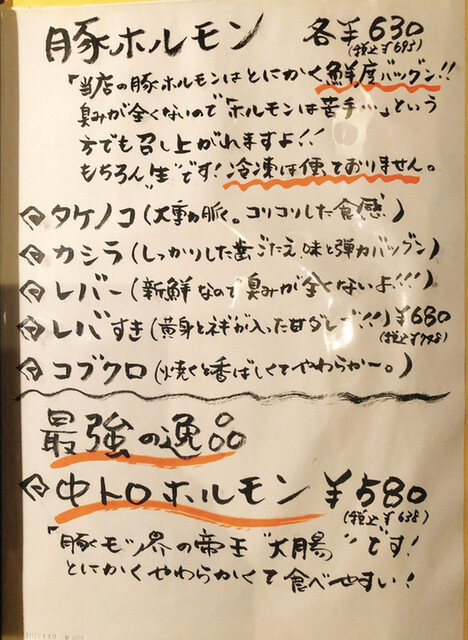 豚ホルモン 各¥630
(税込¥693)
「当店の豚ホルモンはとにかく鮮度バツグン!!
臭みが全くないので「ホルモンは苦手…」という
方でも召し上がれますよ!!
もちろん"生"です!冷凍は使っておりません。
タケノコ(大動脈。コリコリした食感)
カシラ(しっかりした歯ごたえ、味と弾力バツグン)
レバー(新鮮なので臭みが全くないよ!!!)
レバすき(黄身とネギが入った甘ダレで!!)¥680
(税込¥748)
コブクロ(焼くと香ばしくてやわらか〜。)
最強の逸品
中トロホルモン ¥580
(税込¥638)
「豚モツ界の帝王"大腸"です!
とにかくやわらかくて食べやすい!